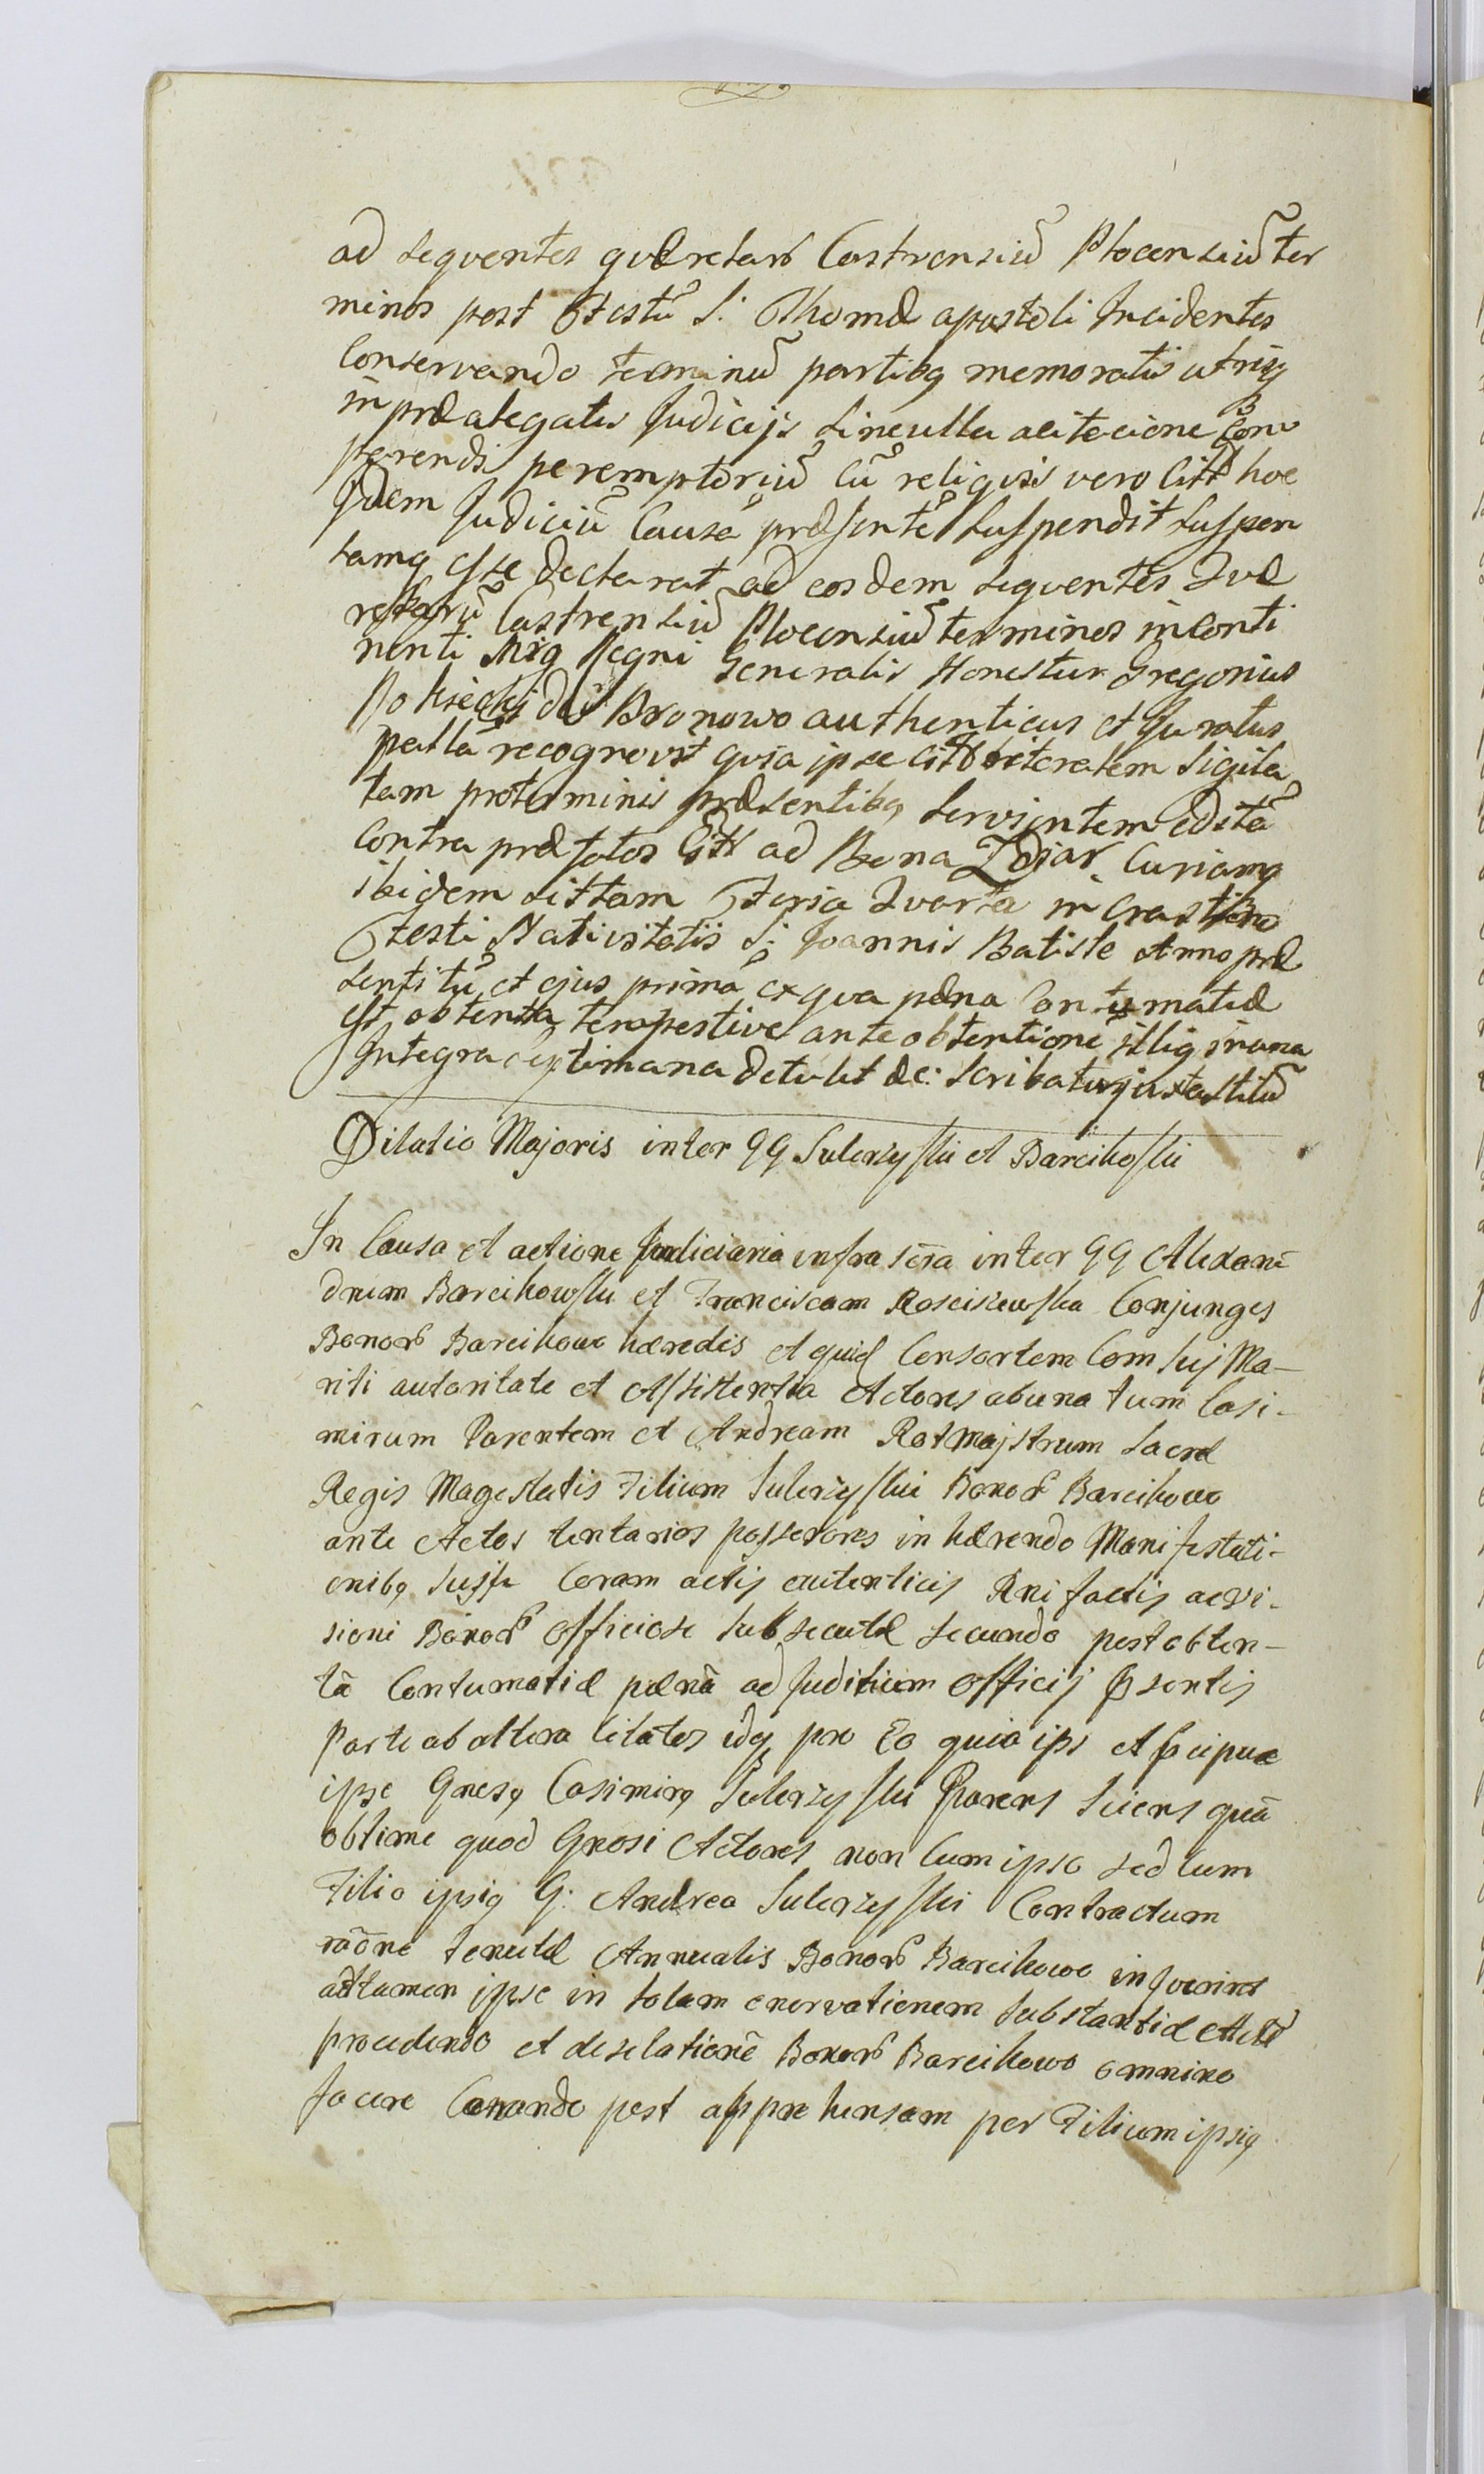 ad sequentes quærelarũ Castrensiũ Plocensiũ ter
minos post Festũ S: Thomæ apostoli Incidentes
Conservando terminũ partibq memoratis utrisq
in præalegatis Judicijs sine ulla acitacione Com
parendi peremptoriũ Cũ reliquis vero Citt hoc
Idem Judiciũ Causã præsentẽ suspendit suspen
samq esse declarat ad eosdem sequentes Quæ
relarũ Castrensiũ Plocensiũ terminos in Conti
nenti Mrq Regni Generalis Honestus Gregorius
de Bronowo authenticus et Juratus
palã recognovit quia ipse Citt literatem sigila
tam pro terminis præsentibq servientem editã
Contra præfatos Citt ad Bona Zdziar Curiamq
ibidem sittam Feria Quarta in Crastino
Festi Nativitatis S: Joannis Batiste Anno præ
senti tũ et ejus primã ex qua pæna Contumatiæ
est obtenta tempestive ante obtentionẽ illiq una
Integra Septimana detulit &c: Scribatur juxta stilũ
Dilatio Majoris inter GG Sulerzyski et Barcikoski
In Causa et actione Judiciaria infra scra inter GG Alexan
drum Barcikowski et Franciscam Rosciszewska Conjunges
Bonorũ Barcikowo hæredes et quid Consortem Com suj Ma-
riti autoritate et Assistentia Actores ab una tum Casi-
mirum Parentem et Andream Rotmajstrum Sacræ
Regis Magestatis Filium Sulerzyski Bonorũ Barcikowo
ante Actos tentarios possesores in hærendo Manifestati-
onibq suis Coram actis autenticis Rni factis ac Vi-
sioni Bonorũ Officiose subsecutæ secundo post obten-
tã Contumatiæ pænã ad Juditium Officij Psentis
Parte ab altera Citatos idq pro Eo quia ipsi et Pcipue
ipse Gnesq Casimirq Sulerzyski Parens sciens quã
obtime quod Gnosi Actores non Cum ipso sed Cum
Filio ipsiq G: Andrea Sulerzyski Contractum
raõne tenutæ Annualis Bonorũ Barcikowo in
adtamen ipse in totam enervationem substantiæ Actorũ
procedendo et desolationẽ Bonorũ Barcikowo omnino
facere Conando post apprehensam per Filium ipsiq